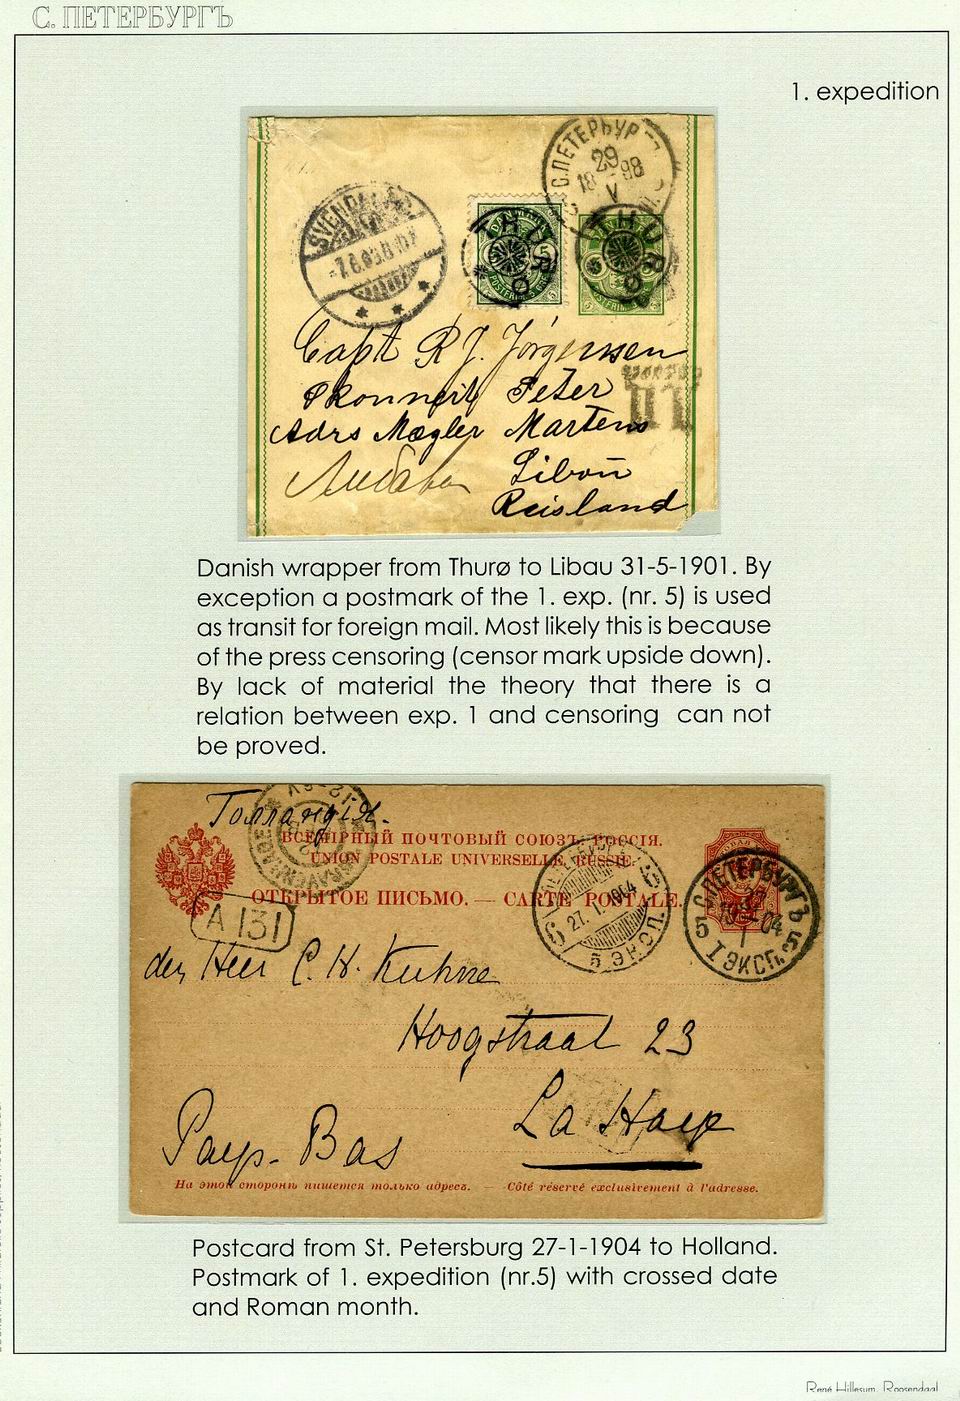 С. ПЕТЕРБУРГЪ
1. expedition
С.ПЕТЕРБУР
29
18 98
V
SVENDBORG
THURØ
THURØ
DANMARK
5
5
Capt R J. Jörgensen
Skonnert Peter
Adrs Mægler Martens
Либава Libau
Reisland
Danish wrapper from Thurø to Libau 31-5-1901. By
exception a postmark of the 1. exp. (nr. 5) is used
as transit for foreign mail. Most likely this is because
of the press censoring (censor mark upside down).
By lack of material the theory that there is a
relation between exp. 1 and censoring can not
be proved.
Голландія.
ВСЕМІРНЫЙ ПОЧТОВЫЙ СОЮЗЪ. РОССІЯ.
UNION POSTALE UNIVERSELLE. RUSSIE.
ОТКРЫТОЕ ПИСЬМО. — CARTE POSTALE.
A 131
27. 1. 1904
6 6
5 ЭКСП.
С.ПЕТЕРБУРГЪ
27
19 04
I
5 5
I ЭКСП.
den Heer C. H. Kuhne
Hoogstraat 23
La Haye
Pays-Bas
На этой сторонѣ пишется только адресъ. — Côté réservé exclusivement à l'adresse.
Postcard from St. Petersburg 27-1-1904 to Holland.
Postmark of 1. expedition (nr.5) with crossed date
and Roman month.
René Hillesum, Roosendaal